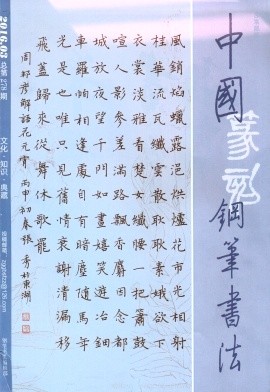 中國鋼筆書法
篆刻
風銷焰蠟露浥烘爐花市光相射
桂華流瓦纖雲散耿耿素娥欲下
衣裳淡雅看楚女纖腰一把簫鼓
喧人影參差滿路飄香麝因念都
城放夜望千門如晝嬉笑遊冶鈿
車羅帕相逢處自有暗塵隨馬年
光是也唯只見舊情衰謝清漏移
飛蓋歸來從舞休歌罷
周邦彥解語花元宵 丙申初春張秀於東湖
2016.03 总第278期
文化·知识·典藏